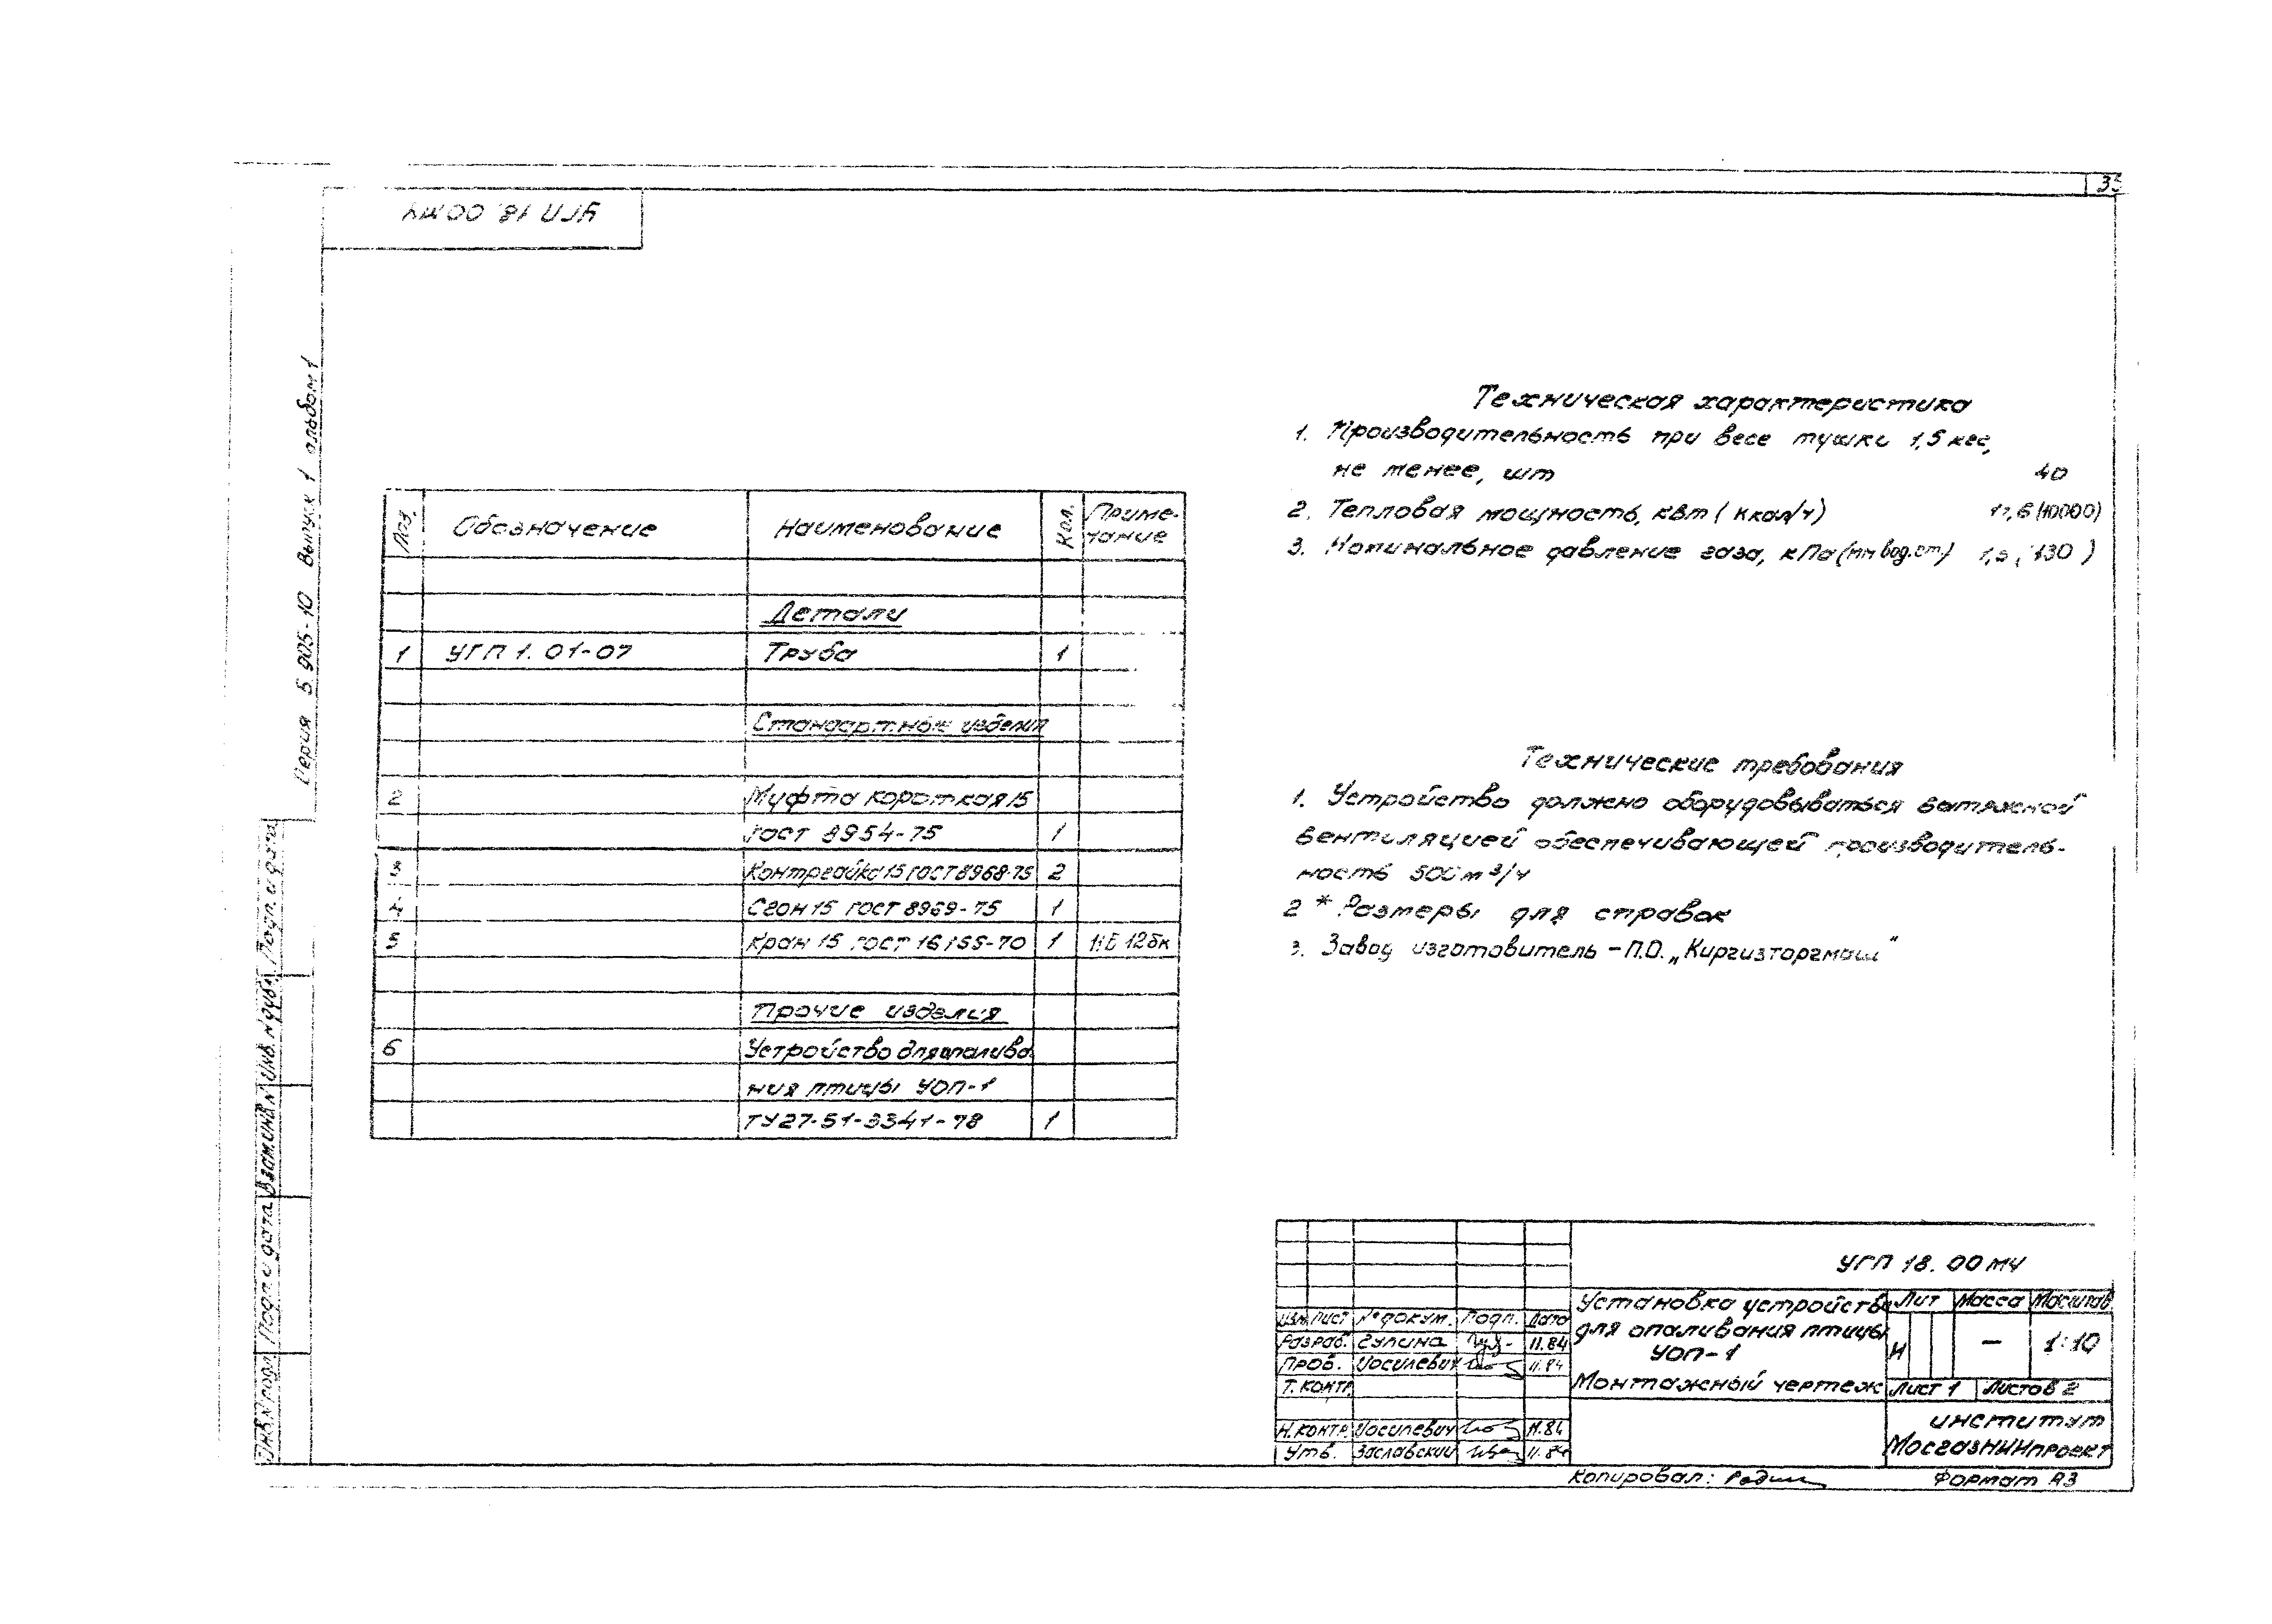 35
УГП 18.00МЧ
Серия 5.905-10 Выпуск 1 альбом 1
Поз. Обозначение Наименование Кол. Приме-
чание
Детали
1 УГП 1.01-07 Труба 1
Стандартные изделия
2 Муфта короткая 15
ГОСТ 8954-75 1
3 Контргайка 15 ГОСТ 8968-75 2
4 Сгон 15 ГОСТ 8969-75 1
5 Кран 15 ГОСТ 16155-70 1 11Б 12бк
Прочие изделия
6 Устройство для опалива-
ния птицы УОП-1
ТУ27-51-3341-78 1
Техническая характеристика
1. Производительность при весе тушки 1,5 кгс,
не менее, шт 40
2. Тепловая мощность, кВт (ккал/ч) 11,6 (10000)
3. Номинальное давление газа, кПа (мм вод.ст.) 1,3 (130)
Технические требования
1. Устройство должно оборудовываться вытяжной
вентиляцией обеспечивающей производитель-
ность 500 м³/ч
2 * Размеры для справок
3. Завод изготовитель – П.О. „Киргизторгмаш“
УГП 18.00МЧ
Установка устройства
для опаливания птицы
УОП-1
Монтажный чертеж
Лит Масса Масштаб
И – 1:10
Лист 1 Листов 2
институт
МосгазНИИпроект
Изм. Лист № докум. Подп. Дата
Разраб. Гулина 11.84
Пров. Иосилевич 11.84
Т. контр.
Н. контр. Иосилевич 11.84
Утв. Заславский 11.84
Инв. № подл. Подп. и дата Взам. инв. № Инв. № дубл. Подп. и дата
Копировал: Формат А3